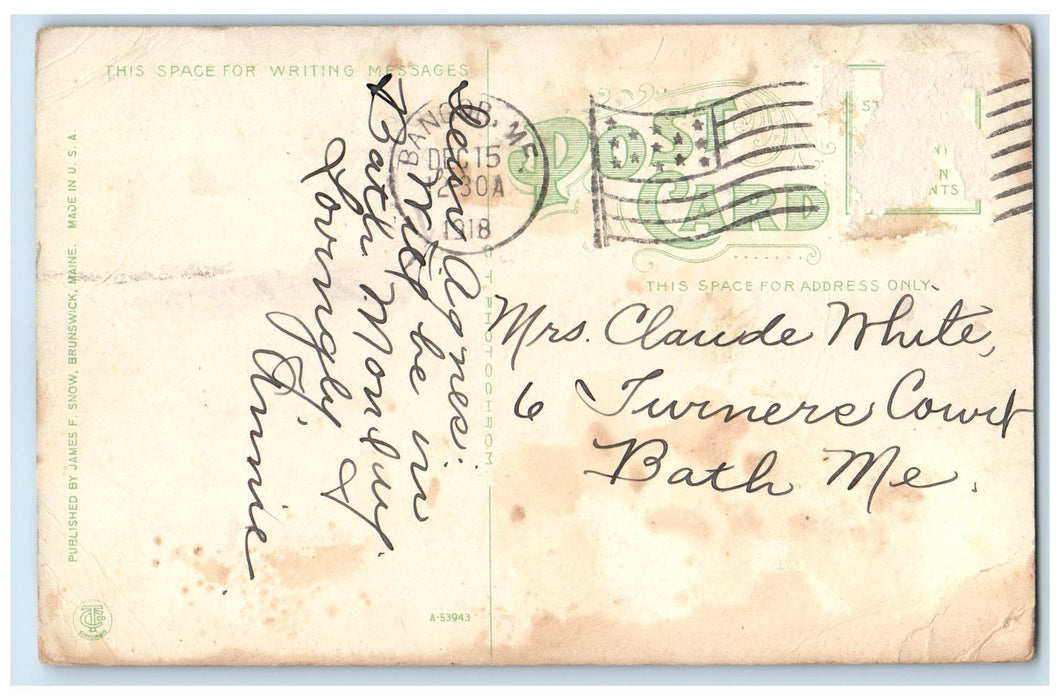 THIS SPACE FOR WRITING MESSAGES
Dear Agnes:
Will be in
Bath Monday.
Lovingly
Annie
BANGOR, ME.
DEC 15
2 30A
1918
POST CARD
THIS SPACE FOR ADDRESS ONLY
Mrs. Claude White,
6 Turners Court
Bath Me.
PUBLISHED BY JAMES F. SNOW, BRUNSWICK, MAINE. MADE IN U.S.A
C T PHOTOCHROM
A-53943
CHICAGO